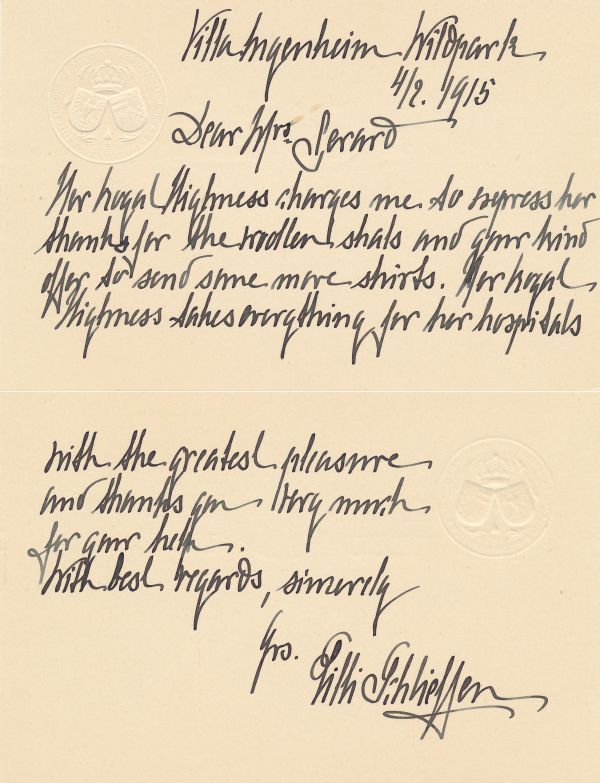 Villa Ingenheim Wildpark
4/2. 1915
Dear Mrs. Gerard
Her Royal Highness charges me to express her
thanks for the woollen shals and your kind
offer to send some more shirts. Her Royal
Highness takes everything for her hospitals
with the greatest pleasure
and thanks you very much
for your help.
With best regards, sincerely
yrs. Lilli Schlieffen